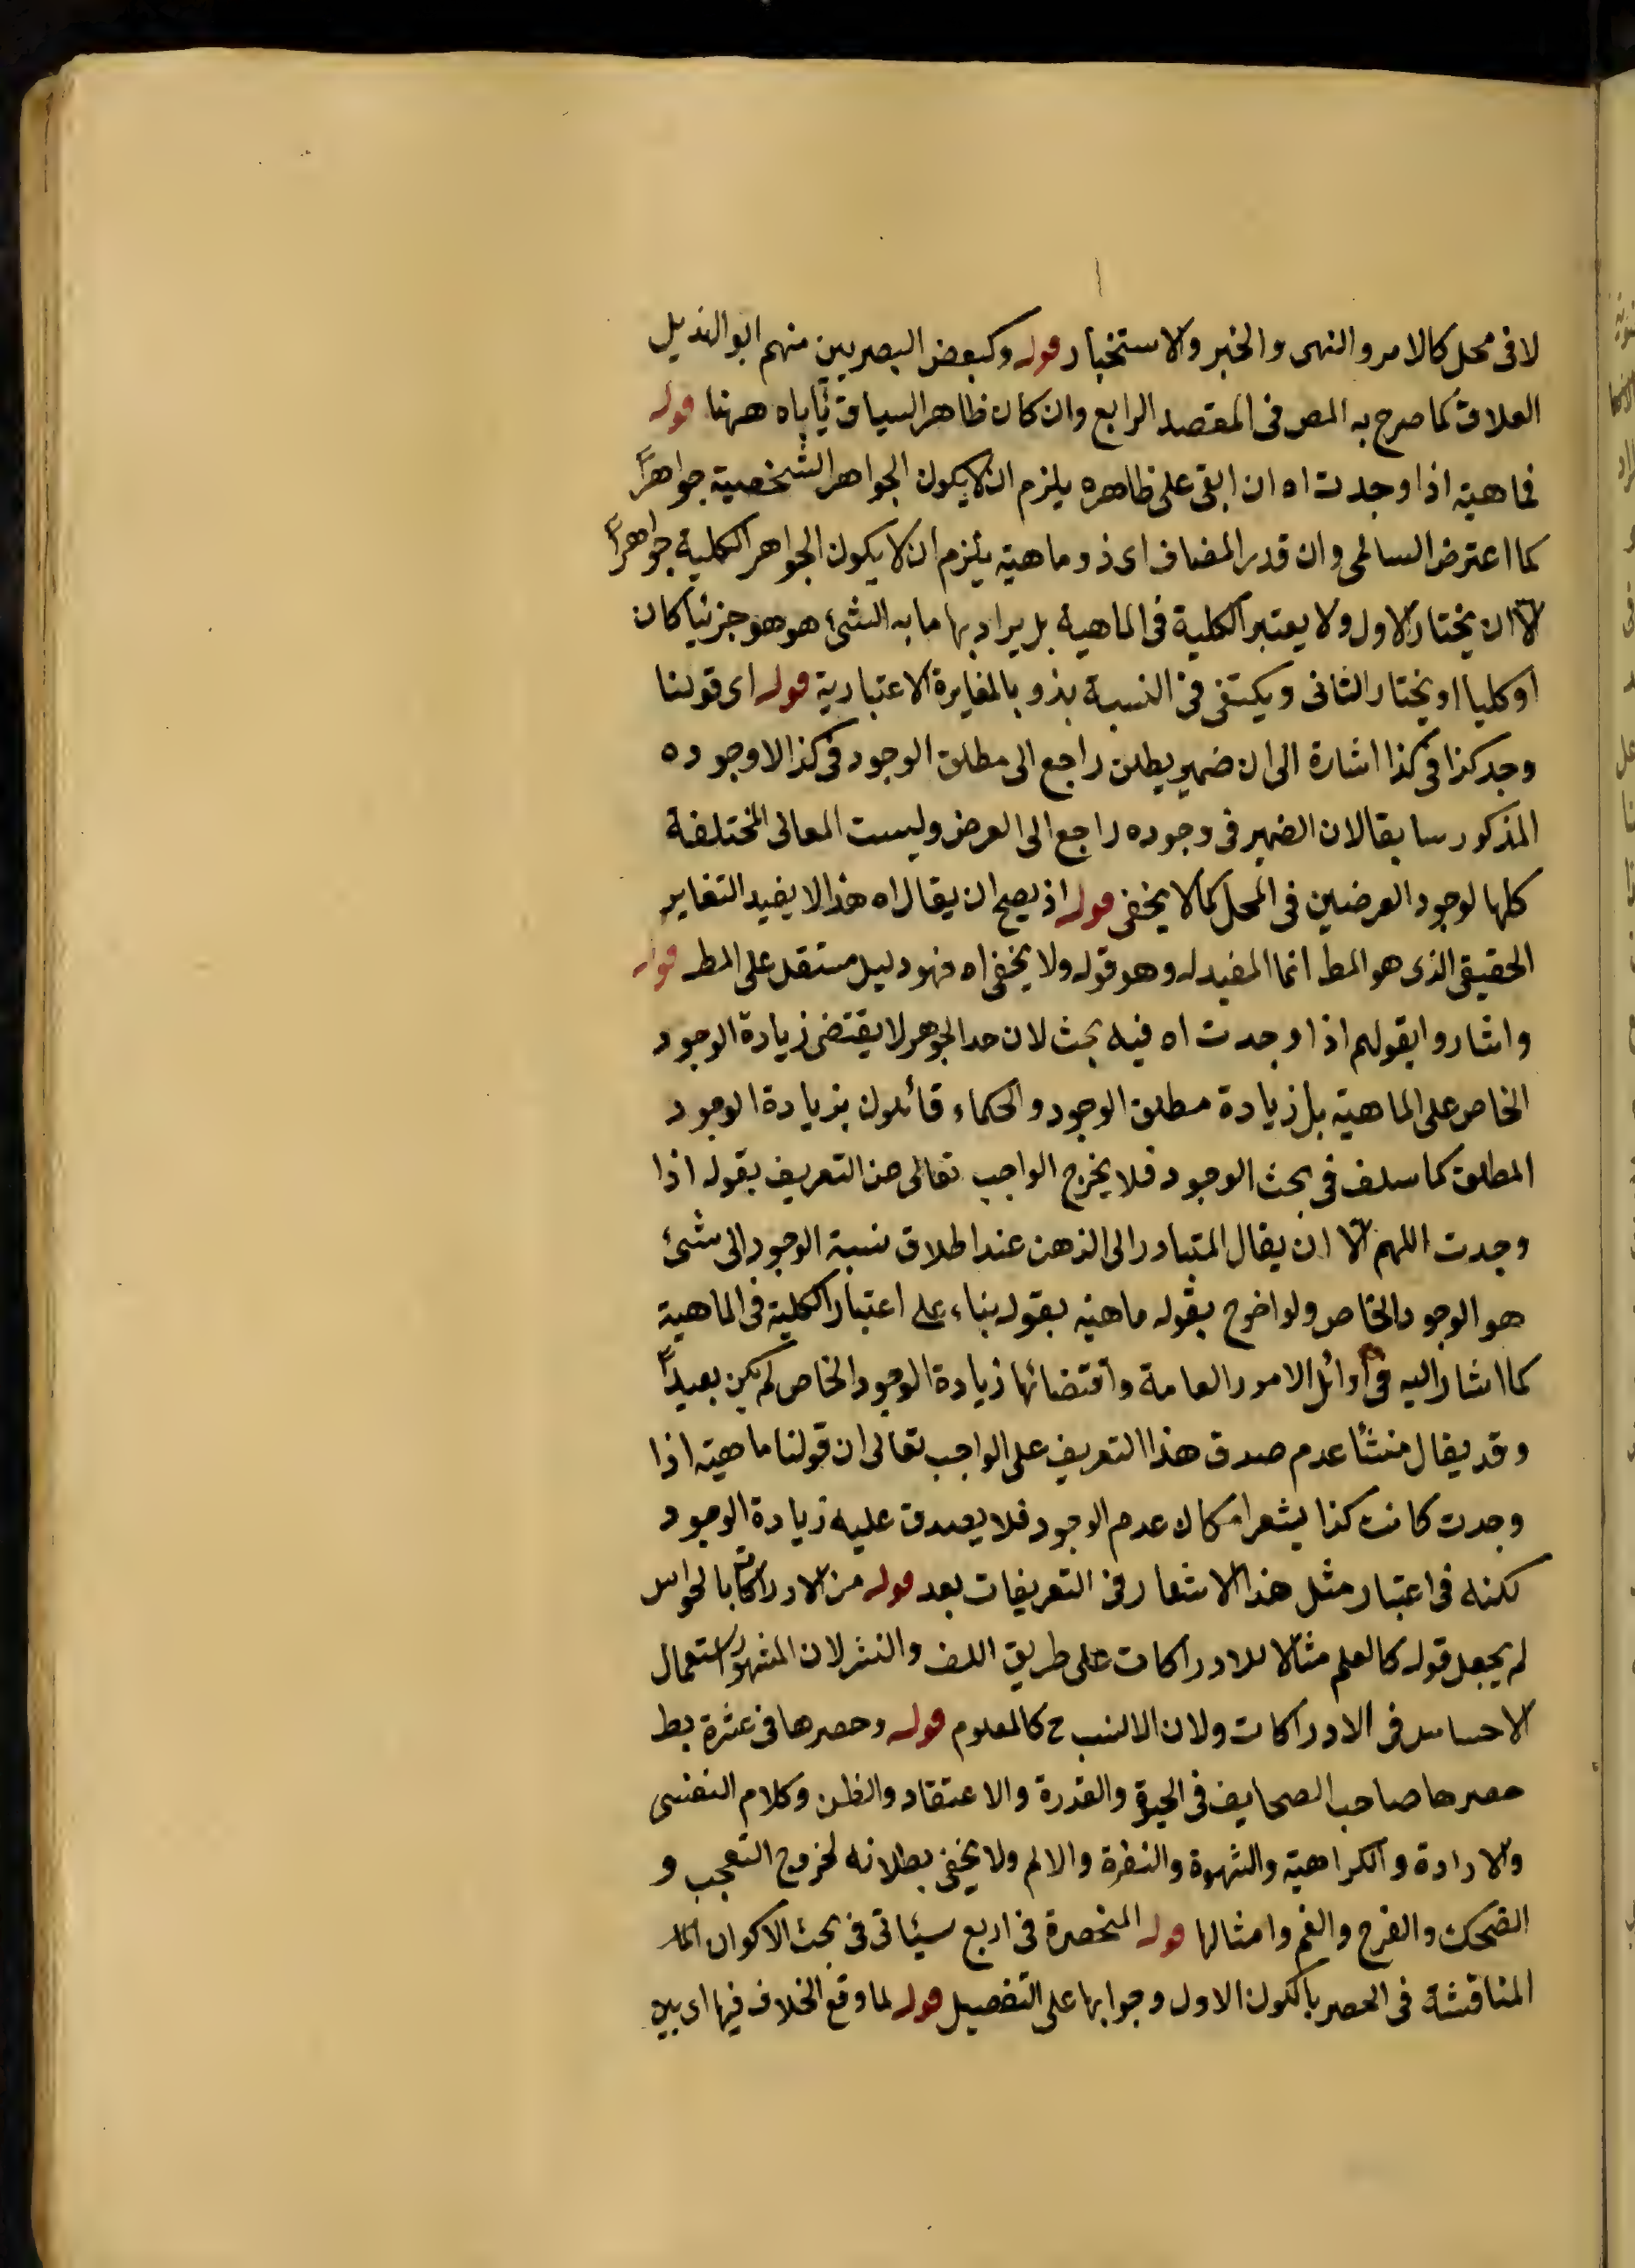 لا فى محل كالامر والنهى والخبر والاستخبار قوله وكبعض البصريين منهم ابو الهذيل
العلاف كما صرح به المص فى المقصد الرابع وان كان ظاهر السياق يأباه ههنا قوله
فماهية اذا وجدت اه ان ابقى على ظاهره يلزم ان لا يكون الجواهر الشخصية جواهرا
كما اعترض السالمى وان قدر المضاف اى ذو ماهية يلزم ان لا يكون الجواهر الكلية جواهرا
الا ان يختار الاول ولا يعتبر الكلية فى الماهية بل يراد بها ما به الشئ هو هو جزئيا كان
او كليا او يختار الثانى ويكتفى فى النسبة بذو بالمغايرة الاعتبارية قوله اى قولنا
وجد كذا فى كذا اشارة الى ان ضمير يطلق راجع الى مطلق الوجود فى كذا لا وجوده
المذكور سابقا لان الضمير فى وجوده راجع الى العرض وليست المعانى المختلفة
كلها لوجود العرضين فى المحل كما لا يخفى قوله اذ يصح ان يقال اه هذا لا يفيد التغاير
الحقيقى الذى هو المط انما المفيد له وهو قوله ولا يخفى اه فهو دليل مستقل على المط قوله
واشاروا بقولهم اذا وجدت اه فيه بحث لان حد الجوهر لا يقتضى زيادة الوجود
الخاص على الماهية بل زيادة مطلق الوجود والحكماء قائلون بزيادة الوجود
المطلق كما سلف فى بحث الوجود فلا يخرج الواجب تعالى من التعريف بقوله اذا
وجدت اللهم الا ان يقال المتبادر الى الذهن عند اطلاق نسبة الوجود الى شئ
هو الوجود الخاص ولو اخرج بقوله ماهية بقوله بناء على اعتبار الكلية فى الماهية
كما اشار اليه فى اوائل الامور العامة واقتضائها زيادة الوجود الخاص لم يكن بعيدا
وقد يقال منشأ عدم صدق هذا التعريف على الواجب تعالى ان قولنا ماهية اذا
وجدت كانت كذا يشعر امكان عدم الوجود فلا يصدق عليه زيادة الوجود
لكنه فى اعتبار مثل هذا الاشعار فى التعريفات بعد قوله من الادراكات بالحواس
لم يجعل قوله كالعلم مثالا للادراكات على طريق اللف والنشر لان المشهور استعمال
الاحساس فى الادراكات ولان الانسب ح كالمعلوم قوله وحصرها فى عشرة بط
حصرها صاحب الصحايف فى الحيوة والقدرة والاعتقاد والظن وكلام النفسى
والارادة والكراهية والشهوة والنفرة والالم ولا يخفى بطلانه لخروج التعجب و
الضحك والفرح والغم وامثالها قوله المنحصرة فى اربع سيأتى فى بحث الاكوان
المناقشة فى الحصر بالكون الاول وجوابها على التفصيل قوله لما وقع الخلاف فيها اى بين